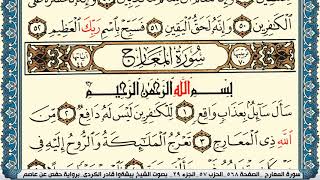 ٱلْكَٰفِرِينَ ٥٠ وَإِنَّهُۥ لَحَقُّ ٱلْيَقِينِ ٥١ فَسَبِّحْ بِٱسْمِ رَبِّكَ ٱلْعَظِيمِ ٥٢
سُورَةُ ٱلْمَعَارِجِ
بِسْمِ ٱللَّهِ ٱلرَّحْمَٰنِ ٱلرَّحِيمِ
سَأَلَ سَآئِلٌۢ بِعَذَابٍ وَاقِعٍ ١ لِّلْكَٰفِرِينَ لَيْسَ
ٱللَّهِ ذِى ٱلْمَعَارِجِ ٣ تَعْرُجُ ٱلْمَلَٰٓئِكَةُ وَٱلرُّوحُ إِلَيْهِ فِى
سورة المعارج . الصفحة ٥٦٨ . الحزب ٥٧ . الجزء ٢٩ . بصوت الشيخ بيشةوا قادر الكردي . برواية حفص عن عاصم